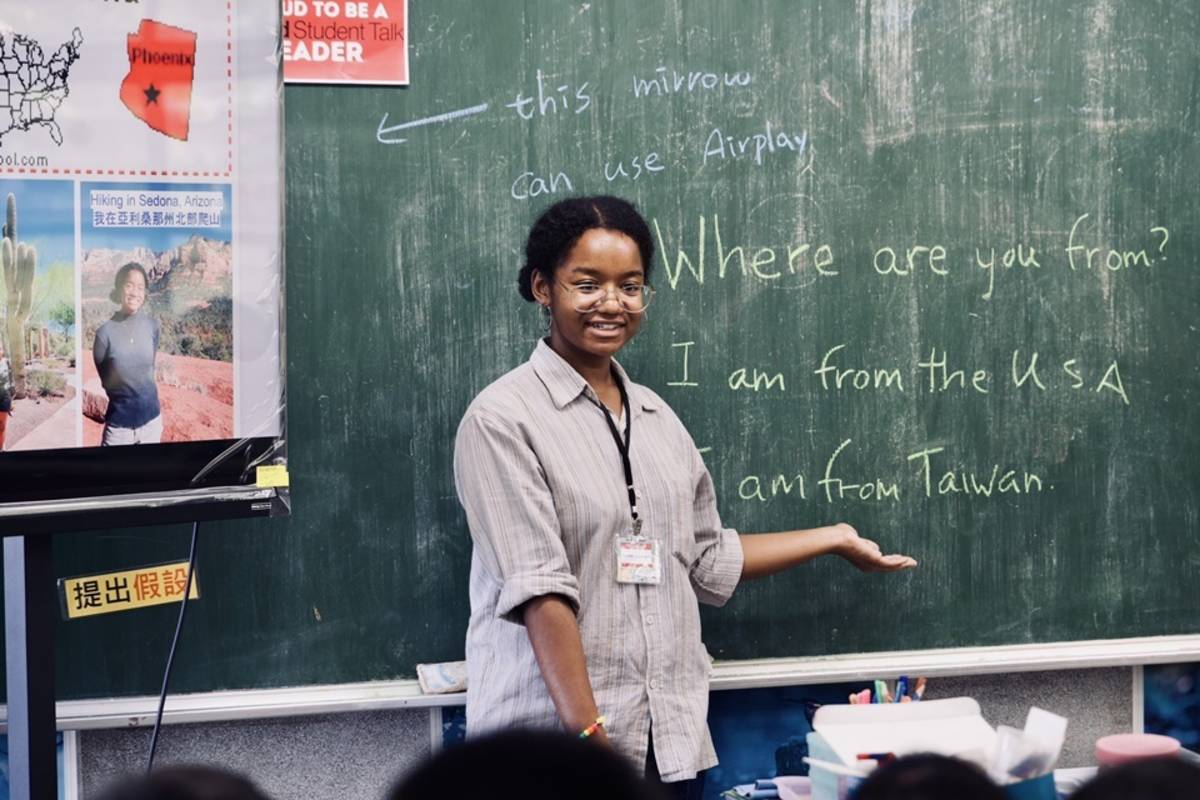 Phoenix
ool.com
Hiking in Sedona, Arizona
我在亞利桑那州北部爬山
UD TO BE A
d Student Talk
EADER
this mirrow
can use Airplay
Where are you from?
I am from the USA
I am from Taiwan.
提出假設